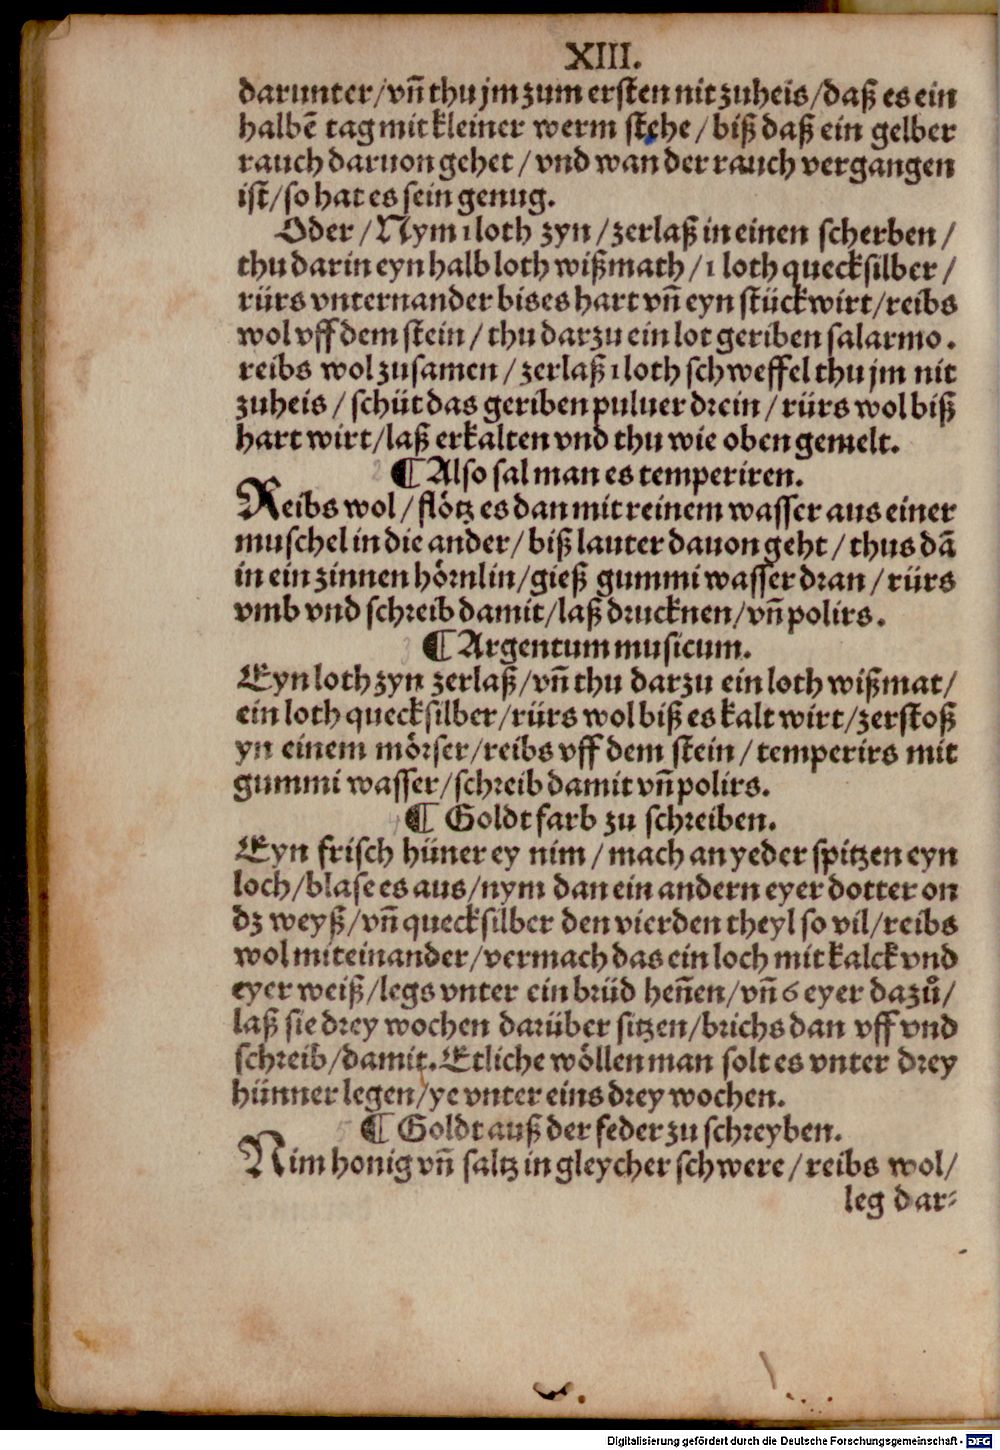 XIII.
darunter/vñ thu jm zum ersten nit zuheis/daß es ein
halbē tag mit kleiner werm stehe/biß daß ein gelber
rauch daruon gehet/vnd wan der rauch vergangen
ist/so hat es sein genug.
Oder/Nym 1 loth zyn/zerlaß in einen scherben/
thu darin eyn halb loth wißmath/1 loth quecksilber/
rürs vnternander bis es hart vñ eyn stück wirt/reibs
wol vff dem stein/thu darzu ein lot geriben salarmo.
reibs wol zusamen/zerlaß 1 loth schweffel thu jm nit
zuheis/schüt das geriben puluer drein/rürs wol biß
hart wirt/laß erkalten vnd thu wie oben gemelt.
¶ Also sal man es temperiren.
Reibs wol/flötz es dan mit reinem wasser aus einer
muschel in die ander/biß lauter dauon geht/thus dā
in ein zinnen hörnlin/gieß gummi wasser dran/rürs
vmb vnd schreib damit/laß drucknen/vñ polirs.
¶ Argentum musicum.
Eyn loth zyn zerlaß/vñ thu darzu ein loth wißmat/
ein loth quecksilber/rürs wol biß es kalt wirt/zerstoß
yn einem mörser/reibs vff dem stein/temperirs mit
gummi wasser/schreib damit vñ polirs.
¶ Goldt farb zu schreiben.
Eyn frisch hüner ey nim/mach an yeder spitzen eyn
loch/blase es aus/nym dan ein andern eyer dotter on
dz weyß/vñ quecksilber den vierden theyl so vil/reibs
wol miteinander/vermach das ein loch mit kalck vnd
eyer weiß/legs vnter ein brüd heñen/vñ 6 eyer dazů/
laß sie drey wochen darüber sitzen/brichs dan vff vnd
schreib/damit. Etliche wöllen man solt es vnter drey
hünner legen/ye vnter eins drey wochen.
¶ Goldt auß der feder zu schreyben.
Nim honig vñ saltz in gleycher schwere/reibs wol/
leg dar⸗
Digitalisierung gefördert durch die Deutsche Forschungsgemeinschaft - DFG